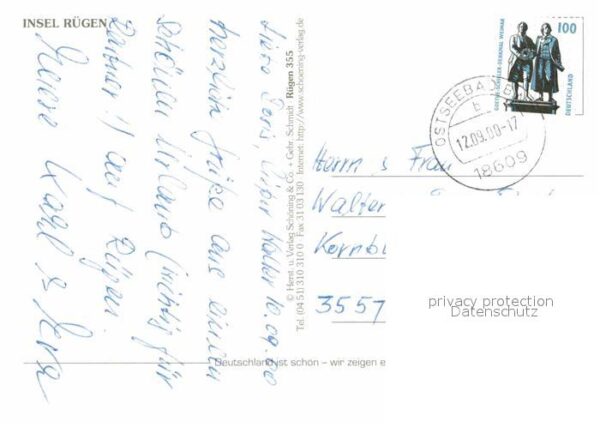 INSEL RÜGEN
Liebe Doris, lieber Walter 10.09.00
herzliche Grüße aus einem
schönen Urlaub (richtig für
Rentner!) auf Rügen.
Karl & Vera
© Herst. u. Verlag Schöning & Co. + Gebr. Schmidt Rügen 355
Tel. (04 51) 310 310 0 Fax 31 03 130 Internet: http://www.schoening-verlag.de
GOETHE-SCHILLER-DENKMAL WEIMAR
100
DEUTSCHLAND
OSTSEEBAD B
b
12.09.00-17
18609
Herrn & Frau
Walter
Kornbu
3557
privacy protection
Datenschutz
Deutschland ist schön – wir zeigen e